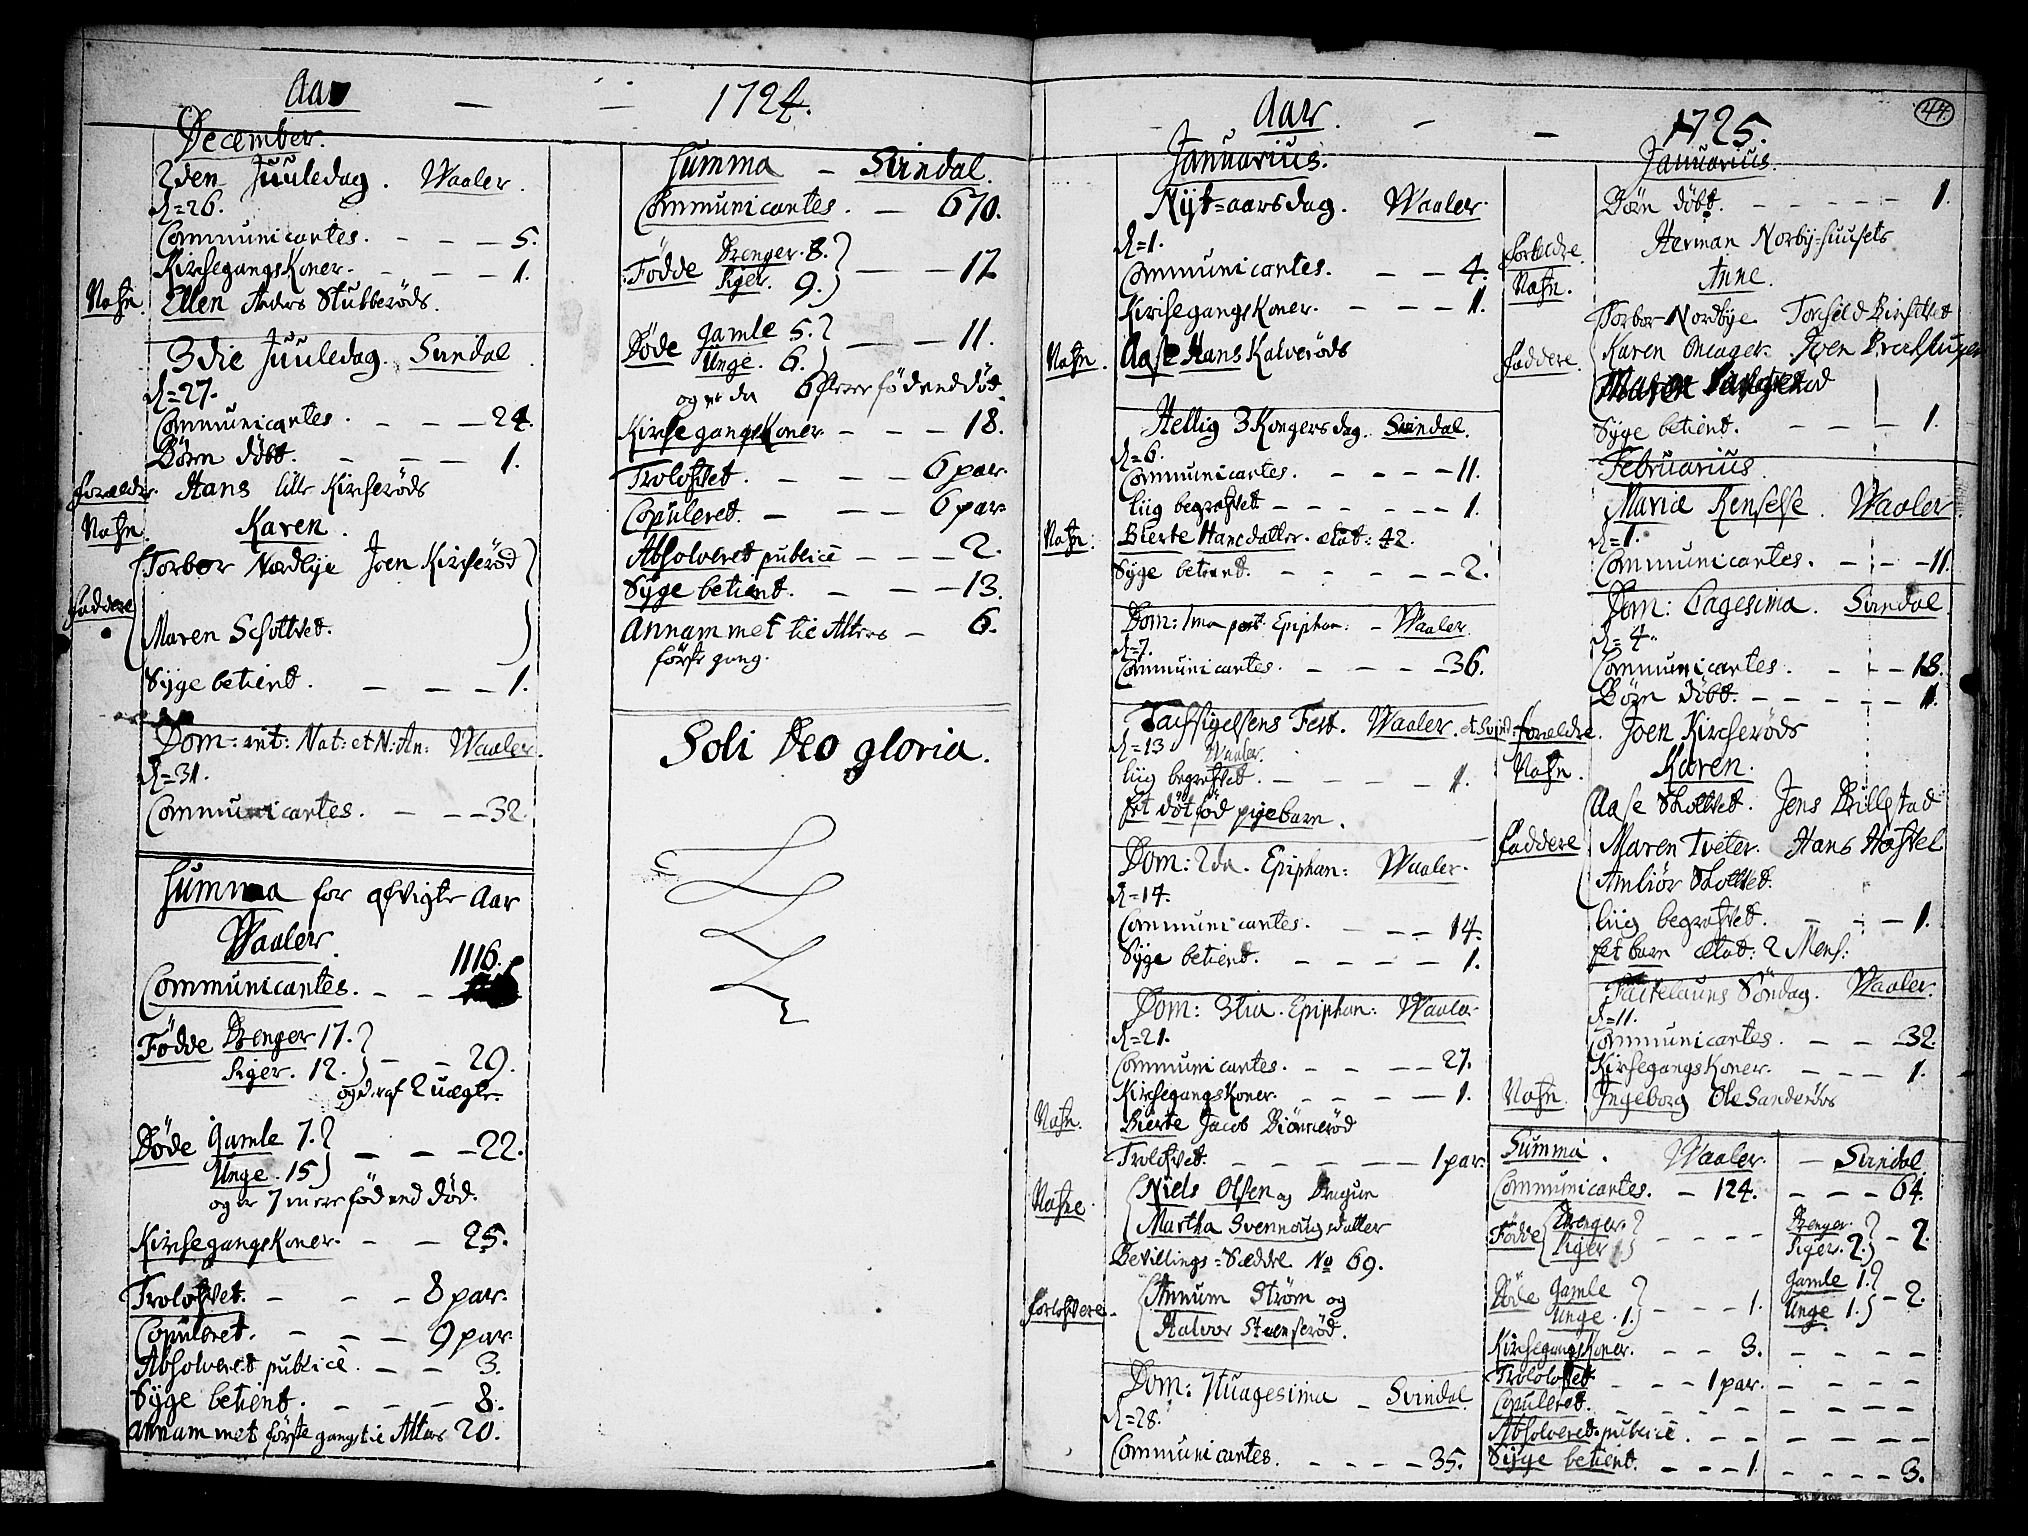 Aar 1724.
December.
2den Juuledag. Waaler.
d=26.
Communicantes. 5.
KirchegangsKoner. 1.
Nafn. Ellen Anders Stubberøds.
3die Juuledag. Svindal
d=27.
Communicantes. 24.
Børn døbt. 1.
forældre. Hans lille Kircherøds
Nafn. Karen.
Torbor Nordbye Joen Kircherød
faddere
Maren Schottvet.
Syge betient. 1.
Dom: int: Nat: et N: An: Waaler.
d=31.
Communicantes. 32.
Summa for afvigte Aar
Waaler.
1116.
Communicantes.
Fødde Drenger 17.
Piger. 12. 29.
og deraf 2 uægte.
Døde Gamle 7. 22.
Unge. 15
og er 7 mere fød end død.
KirchegangsKoner. 25.
Trolofvet. 8 par.
Copuleret. 9 par.
Absolveret publicè. 3.
Syge betient. 8.
Annammet første gang til Alters 20.
Summa Svindal.
Communicantes. 670.
Fødde Drenger. 8.
Piger. 9. 17
Døde Gamle 5. 11.
Unge. 6.
og er da 6 flere fød end død.
KirchegangsKoner. 18.
Trolofvet. 6 par.
Copuleret. 6 par.
Absolveret publicè 2.
Syge betient. 13.
Annammet til Alters 6.
første gang.
Soli Deo gloria.
44.
Aar. 1725.
Januarius.
Nyt=aarsdag. Waaler.
d=1.
Communicantes. 4.
KirchegangsKoner. 1.
Nafn. Aase Hans Kalverøds
Hellig 3 Kongersdag. Svindal.
d=6.
Communicantes. 11.
Liig begrafvet 1.
Nafn. Bierte Hansdatter. ætat: 42.
Syge betient. 2.
Dom: 1ma post Epiphan: Waaler.
d=7.
Communicantes. 36.
Tachsigelsens Fest. Waaler. et Svind:
d=13 Waaler.
Liig begrafvet. 1.
Et dødfød pigebarn.
Dom: 2da Epiphan: Waaler.
d=14.
Communicantes. 14.
Syge betient. 1.
Dom: 3tia. Epiphan: Waaler.
d=21.
Communicantes. 27.
KirchegangsKoner. 1.
Nafn. Bierte Jacob Biørnerød
Trolofvet. 1 par.
Nafne. Niels Olsen og
Martha
Bevillings=Sæddel No 69.
Annum Strøm og
forlofvere.
Halvor Steenserød.
Dom: 7tuagesima Svindal
d=28.
Communicantes. 35.
Januarius.
Børn døbt. 1.
Herman Norby=huusets
forældre.
Nafn. Anne.
Torbor Nordbye
faddere. Karen Joen
Maren
Syge betient. 1.
Februarius
Mariæ Renselse. Waaler
d=1.
Communicantes. 11.
Dom: Svindal.
d=4.
Communicantes. 18.
Børn døbt. 1.
forældre. Joen Kircherøds
Nafn. Karen.
Aase Skottvet. Jens Billestad
faddere Maren Tveter. Hans
Anbiør Skottvet.
Liig begrafvet. 1.
Et barn ætat: 2 Mens:
Fastelauns Søndag. Waaler.
d=11.
Communicantes. 32.
KirchegangsKoner. 1.
Nafn. Ingeborg Ole Sanderøds
Summa. Waaler. Svindal
Communicantes. 124. 64.
Fødde Drenger. Piger
Drenger. Piger. 2. 2.
Døde Gamle Unge. 1. 1.
Gamle 1. Unge 1. 2.
KirchegangsKoner. 3.
Trolofvet. 1 par.
Copuleret.
Absolveret publicè.
Syge betient. 1. 3.